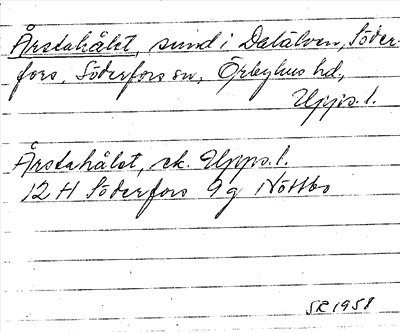 Årstahålet, sund i Dalälven, Söder-
fors, Söderfors sn, Örbyhus hd,
Upps. l.
Årstahålet, ek. Upps. l.
12 H Söderfors 9g Nöttbo
SR 1958